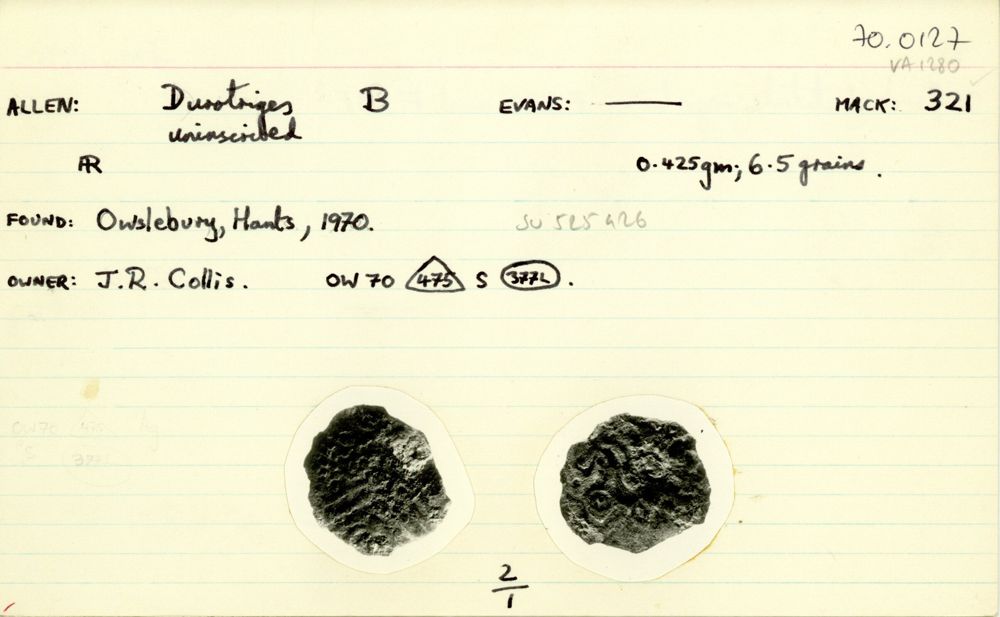 70.0127
VA1280
ALLEN: Durotriges B EVANS: —— MACK: 321
uninscribed
AR 0.425gm; 6.5 grains.
FOUND: Owslebury, Hants, 1970. SU 525 426
OWNER: J.R. Collis. OW 70 475 S 377L.
OW70 475
S 377L
2
1